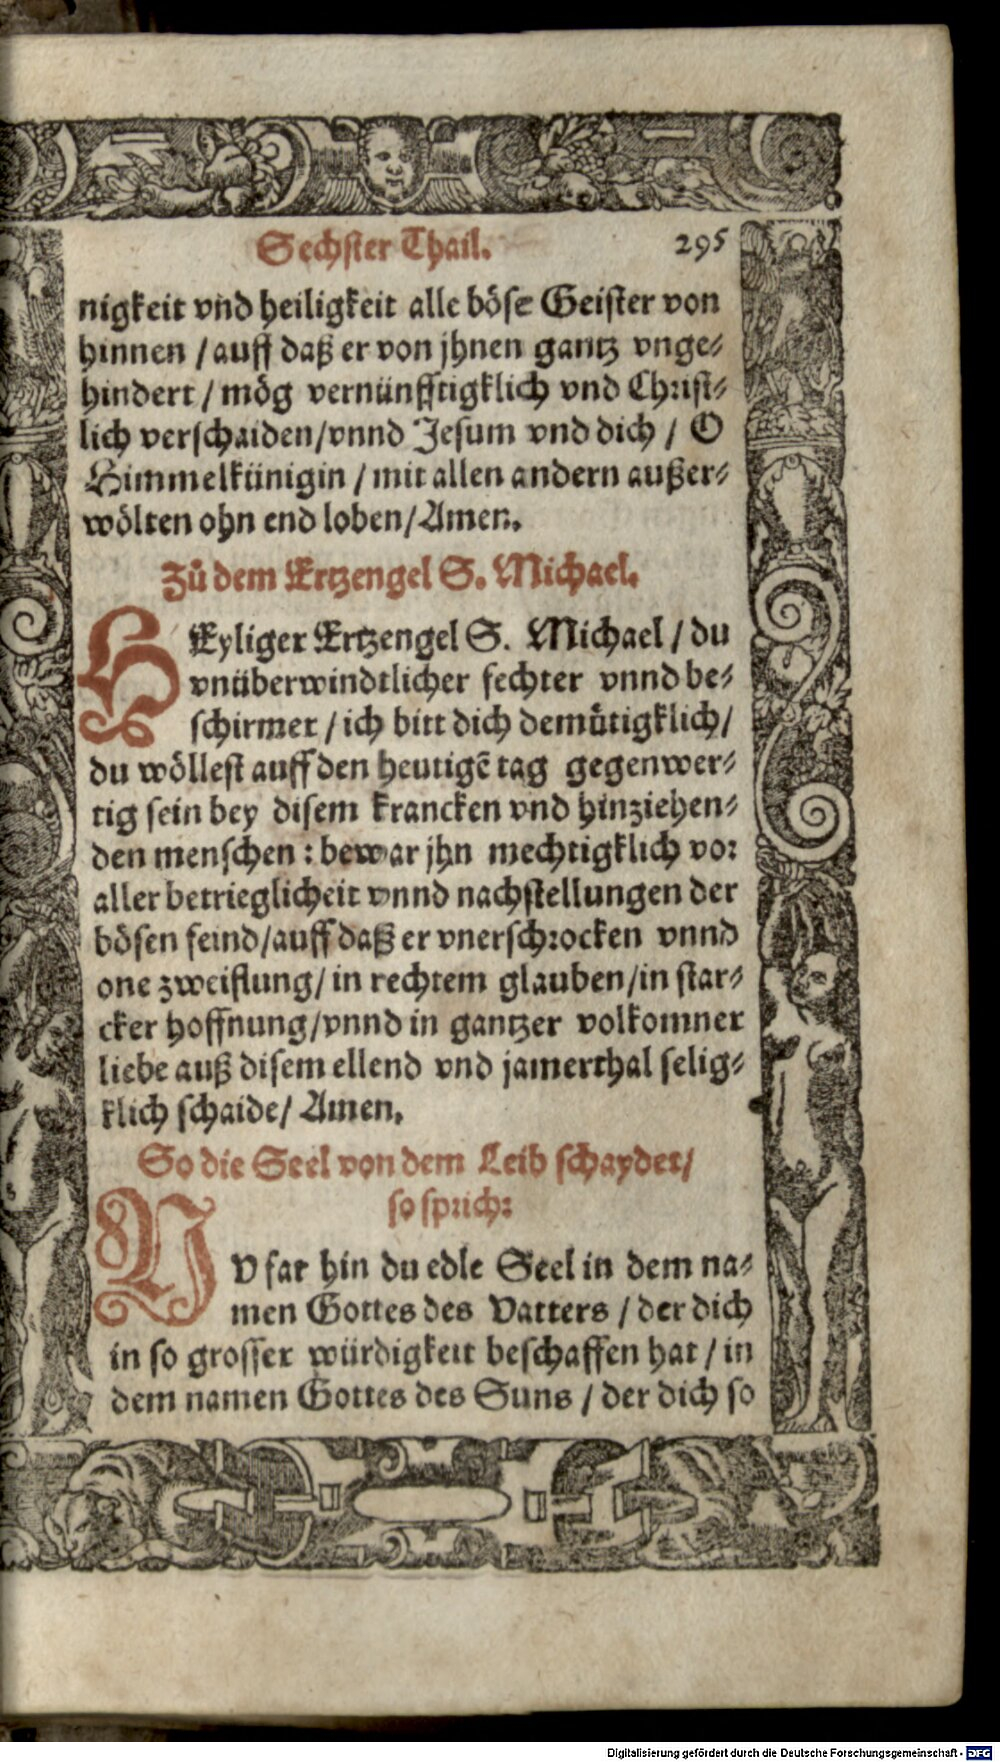 Sechster Thail. 295
nigkeit vnd heiligkeit alle böse Geister von
hinnen / auff daß er von jhnen gantz vnge-
hindert / mög vernünfftigklich vnd Christ-
lich verschaiden/vnnd Jesum vnd dich / O
Himmelkünigin / mit allen andern außer-
wölten ohn end loben/Amen.
Zů dem Ertzengel S. Michael.
HEyliger Ertzengel S. Michael / du
vnüberwindtlicher fechter vnnd be-
schirmer / ich bitt dich demütigklich/
du wöllest auff den heutigẽ tag gegenwer-
tig sein bey disem krancken vnd hinziehen-
den menschen : bewar jhn mechtigklich vor
aller betrieglicheit vnnd nachstellungen der
bösen feind/auff daß er vnerschrocken vnnd
one zweiflung/ in rechtem glauben/in star-
cker hoffnung/vnnd in gantzer volkomner
liebe auß disem ellend vnd jamerthal selig-
klich schaide/ Amen.
So die Seel von dem Leib schayder/
so sprich:
NV far hin du edle Seel in dem na-
men Gottes des Vatters / der dich
in so grosser würdigkeit beschaffen hat / in
dem namen Gottes des Suns / der dich so
Digitalisierung gefördert durch die Deutsche Forschungsgemeinschaft - DFG